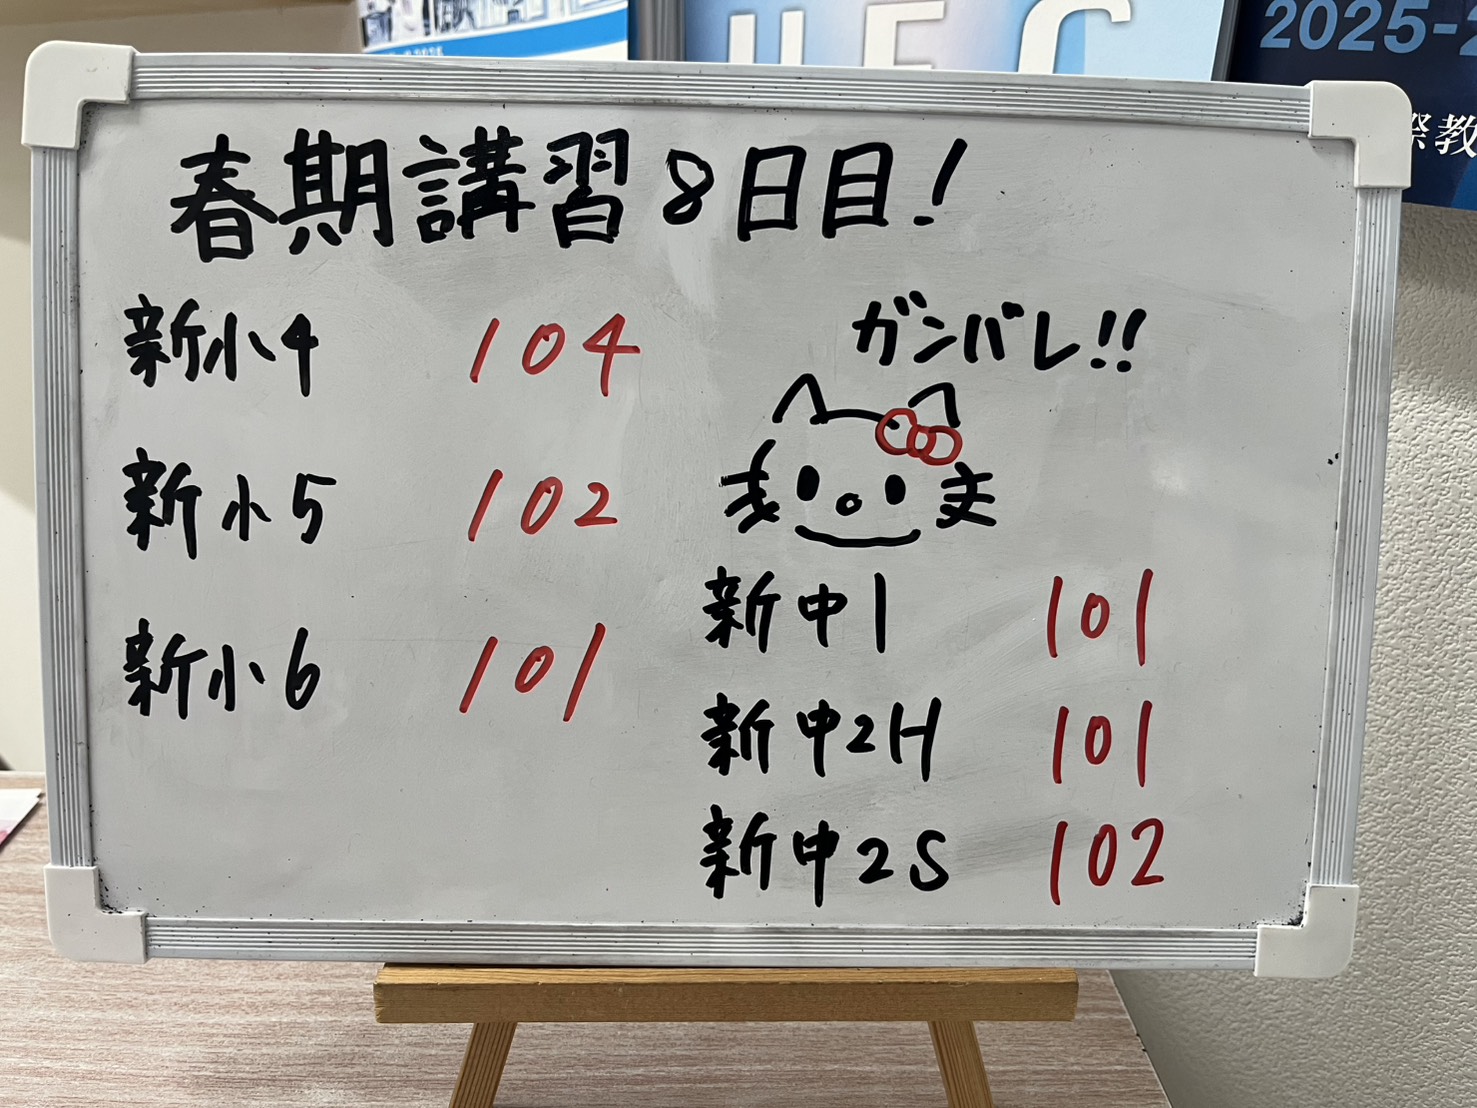 UEC
2025-2
際教
春期講習8日目!
新小4 104
新小5 102
新小6 101
ガンバレ!!
新中1 101
新中2H 101
新中2S 102